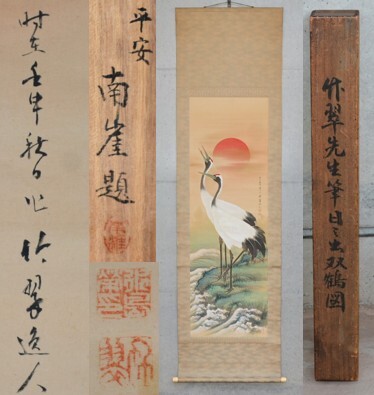 時在壬申秋日作 竹翠逸人
平安
南崖題
竹翠先生筆日之出双鶴図